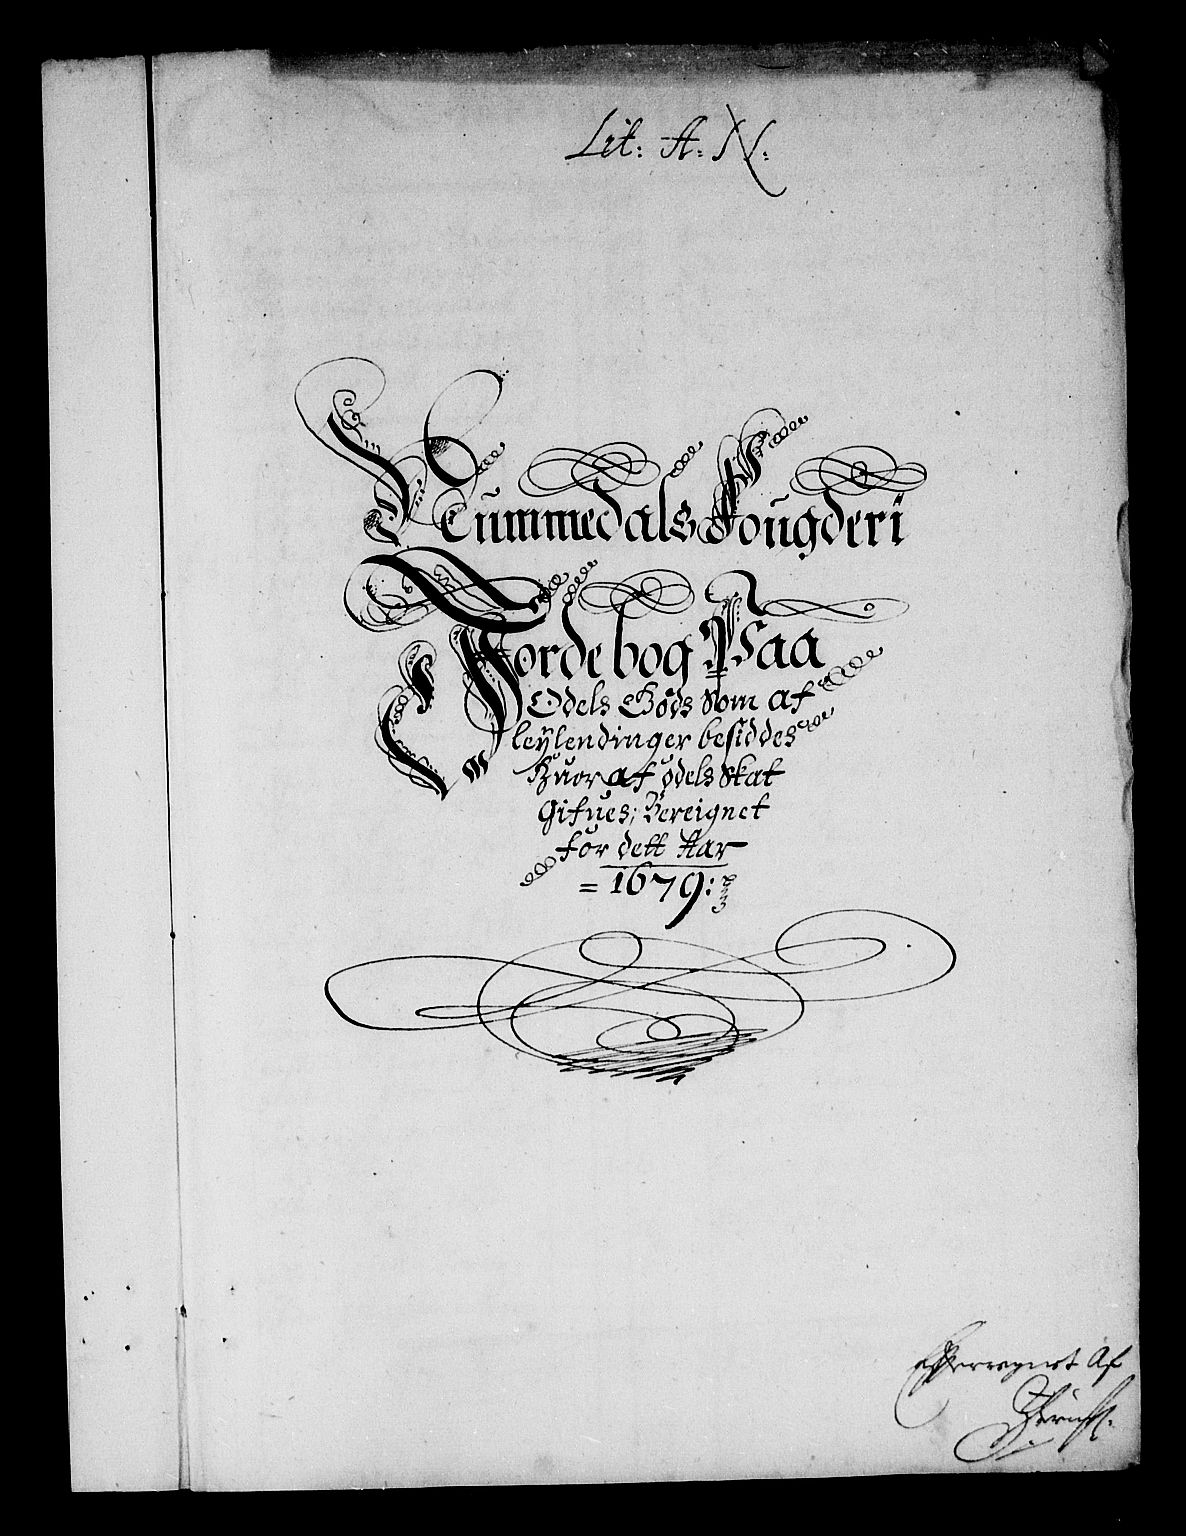 Lit: A: N:
Nummedals Fougderi
Jordebog Paa
Odels Gods Som af
leÿlendinger besiddes
Huor af odels Skat
Gifues; Bereignet
for dett Aar
= 1679:
Efterregnet Af